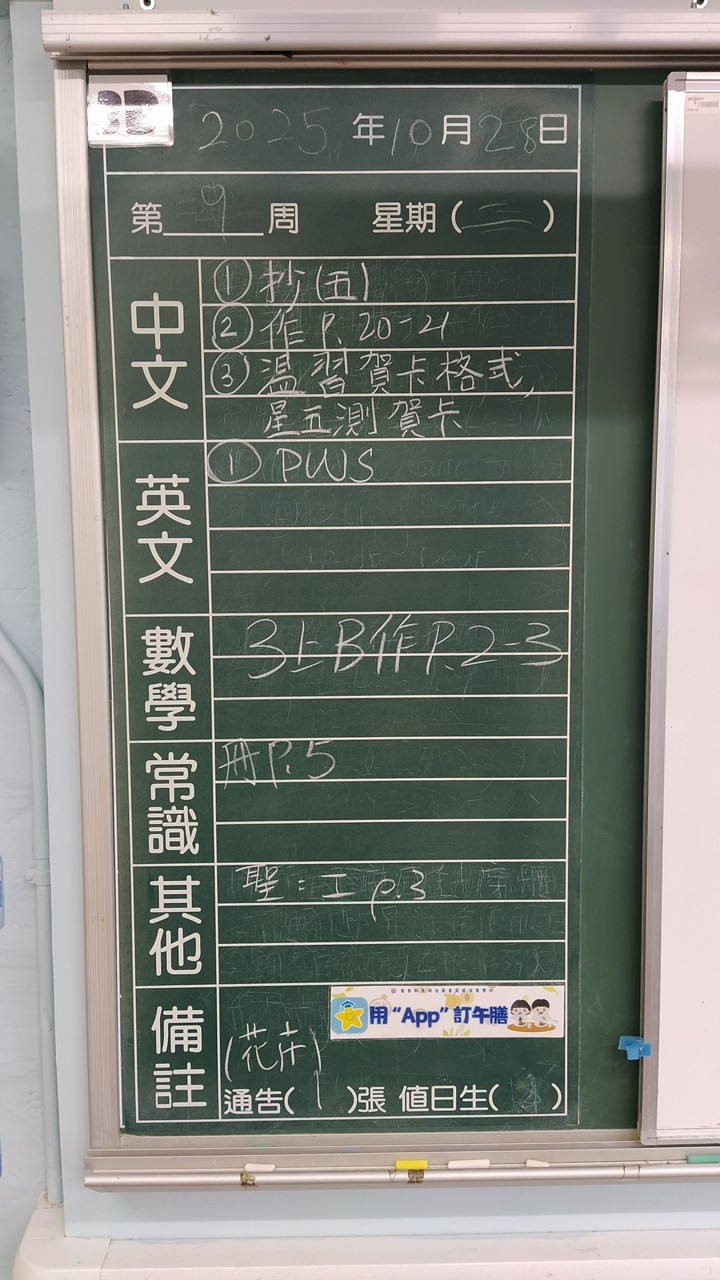 2025年10月28日
第9周 星期(二)
中文
①抄(五)
②作P.20-21
③溫習賀卡格式,
星五測賀卡
英文
① PWS
數學
3上B作P.2-3
常識
冊P.5
其他
聖:工 p.3
備註
用“App”訂午膳
(花卉)
通告(1)張 值日生( )